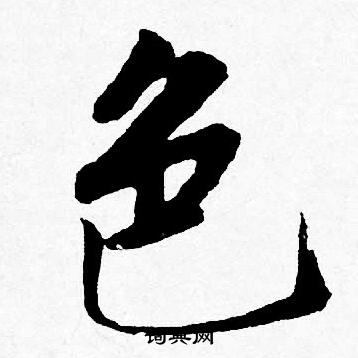 色
词典网